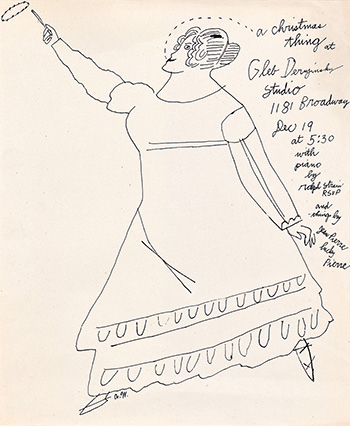 a christmas
thing at
Gleb Derujinsky
studio
1181 Broadway
Dec 19
at 5:30
with
piano
by
ralph Strain
RSVP
and
things by
Jean Pierre
Pierre